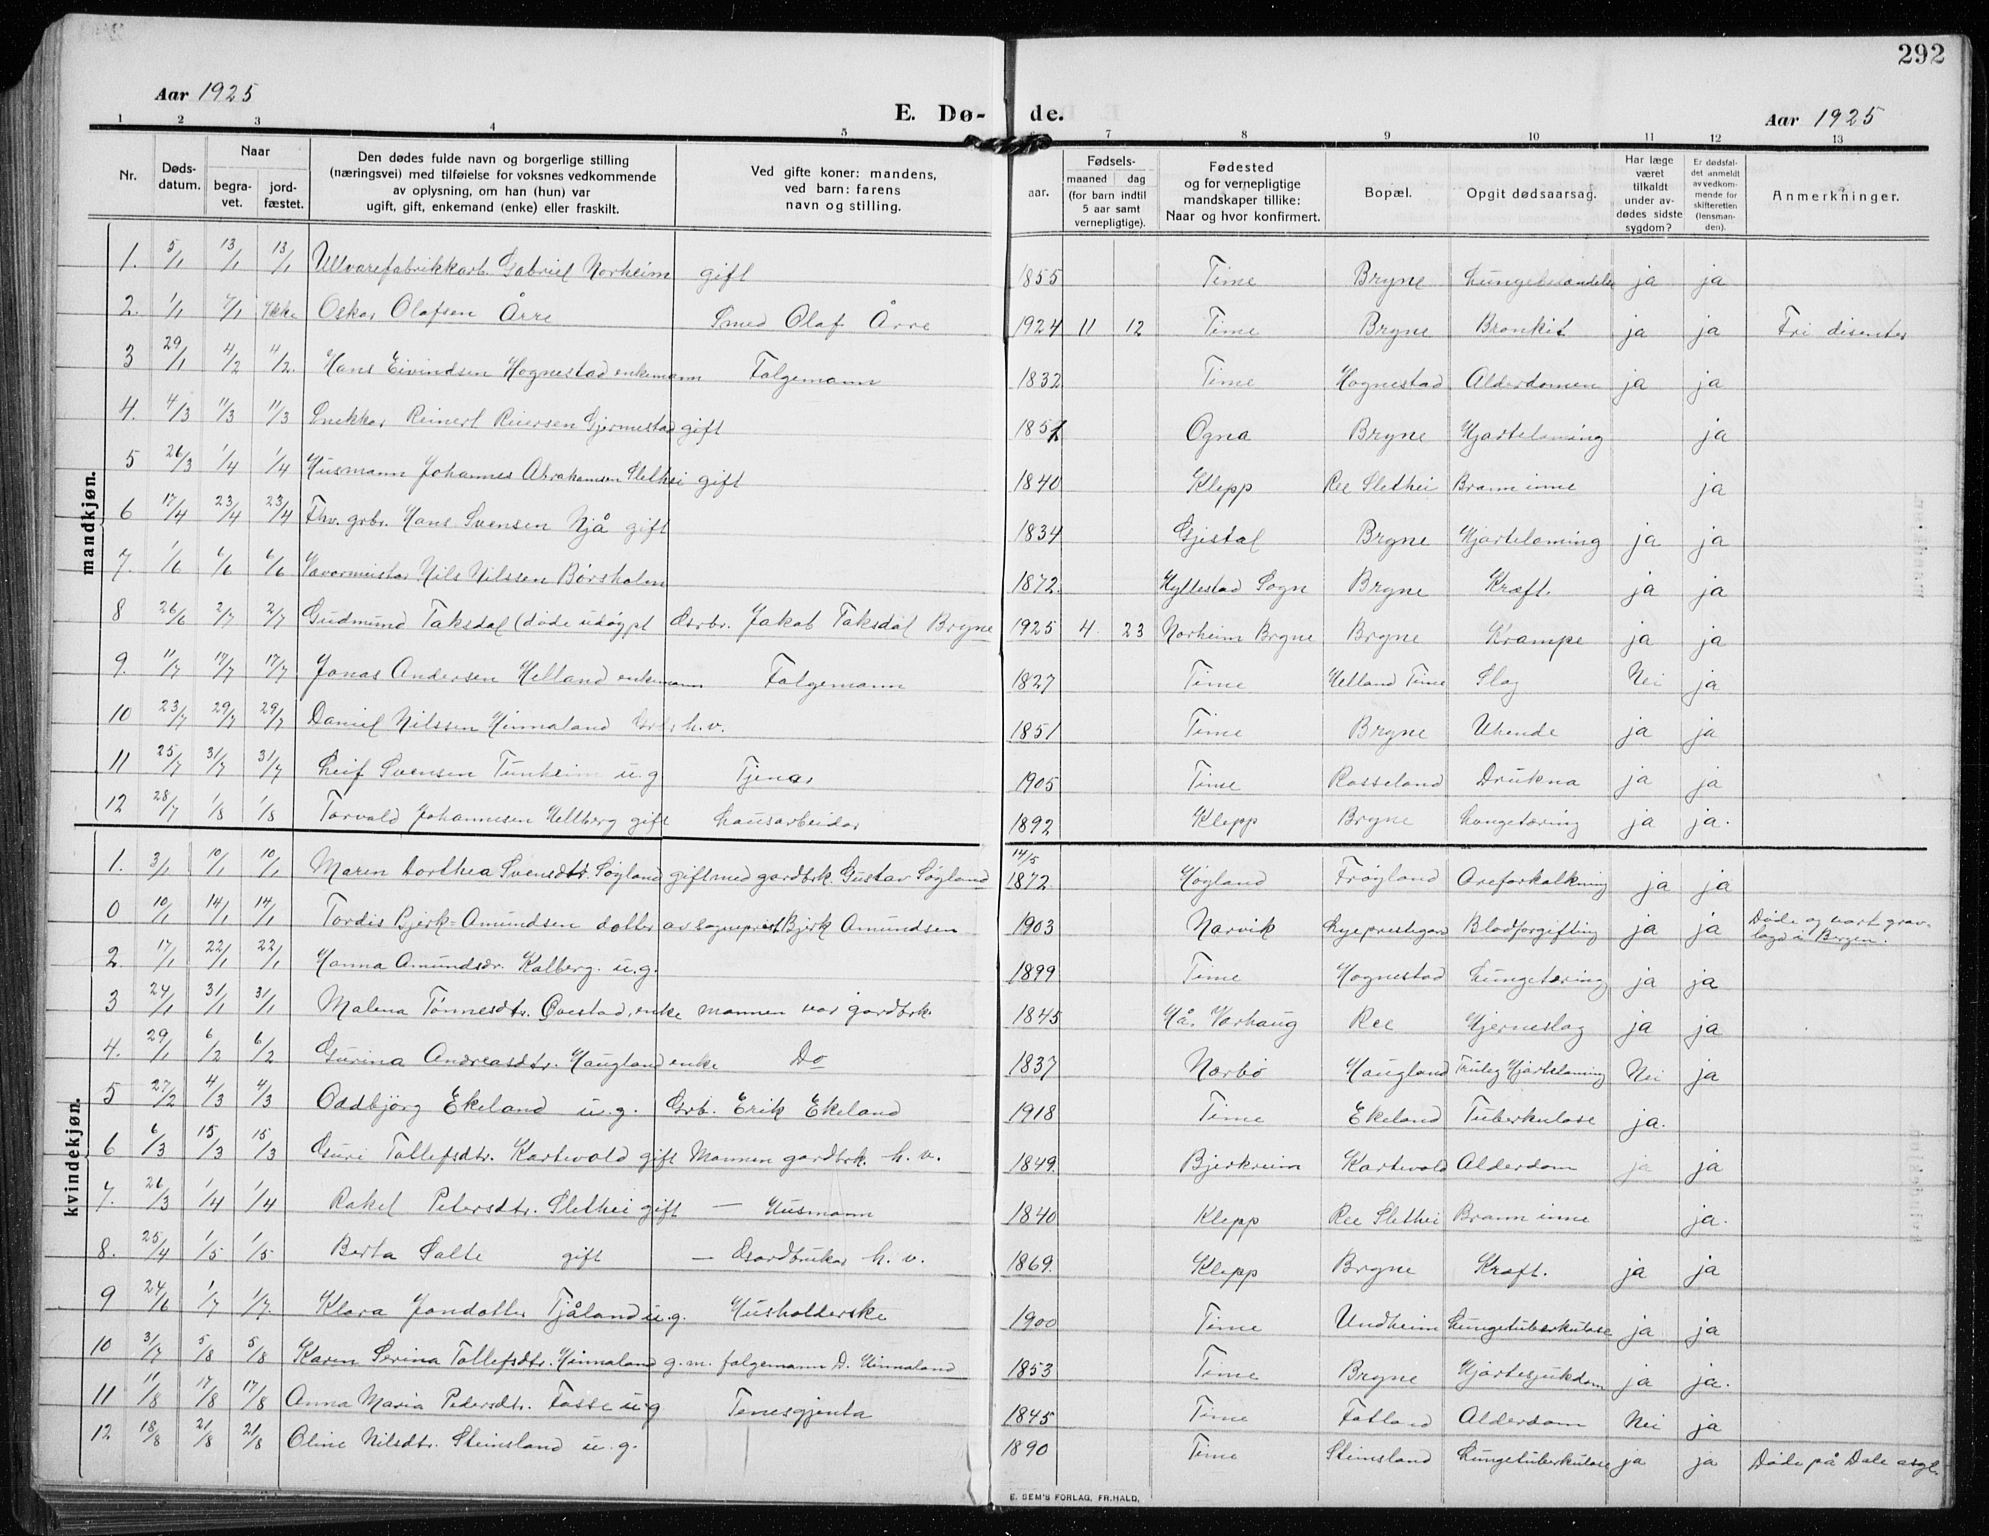 292
Aar 1925
E. Dø-
de.
Aar 1925
1 2 3 4 5 6 7 8 9 10 11 12 13
Nr.
Døds-
datum.
Naar
begra-
vet.
jord-
fæstet.
Den dødes fulde navn og borgerlige stilling
(næringsvei) med tilføielse for voksnes vedkommende
av oplysning, om han (hun) var
ugift, gift, enkemand (enke) eller fraskilt.
Ved gifte koner: mandens,
ved barn: farens
navn og stilling.
Fødsels-
aar. maaned dag
(for barn indtil
5 aar samt
vernepligtige).
Fødested
og for vernepligtige
mandskaper tillike:
Naar og hvor konfirmert.
Bopæl.
Opgit dødsaarsag.
Har læge
været
tilkaldt
under av-
dødes sidste
sygdom?
Er dødsfal-
det anmeldt
av vedkom-
mende for
skifteretten
(lensman-
den).
Anmerkninger.
mandkjøn.
1. 5/1 13/1 13/1 Ullvarefabrikkarb. Gabriel Norheim gift 1855 Time Bryne Lungebetændelse ja ja
2. 1/1 7/1 Ikke Oskar Olafsen Årre Smed Olaf Årre 1924 11 12 Time Bryne Bronkit ja ja Fri disenter
3 29/1 4/2 4/2. Hans Eivindsen Hognestad enkemann Folgemann 1832 Time Hognestad Alderdomen ja ja
4. 4/3 11/3 11/3 Snekkar Reinert Reiersen Gjermestad gift 1851 Ogna Bryne Hjartelaming ja
5 26/3 1/4 1/4 Husmann Johannes Abrahamsen Slethei gift 1840 Klepp Ree Slethei Brann inne ja
6 17/4 23/4 23/4 Fhv. grbr. Hans Svensen Njå gift 1834 Gjestal Bryne Hjartelaming ja ja
7. 1/6 6/6 6/6 Vavermeistar Nils Nilssen Børsholm 1872. Hyllestad Sogn Bryne Kræft. ja ja
8 26/6 2/7 2/7 Gudmund Taksdal (døde udøypt Gbr. Jakob Taksdal Bryne 1925 4. 23 Norheim Bryne Bryne Krampe ja ja
9. 11/7 17/7 17/7 Jonas Andersen Helland enkemann Folgemann 1827 Time Helland Time Slag Nei ja
10 23/7 29/7 29/7 Daniel Nilssen Hinnaland Grbr. h.v. 1851 Time Bryne Uhende ja ja
11 25/7 31/7 31/7 Leif Svensen Tunheim u.g Tjenar 1905 Time Rosseland Drukna ja ja
12 28/7 1/8 1/8 Torvald Johannesen Hellberg gift Lausarbeidar 1892 Klepp Bryne Lungetæring ja ja.
kvindekjøn.
1. 3/1 10/1 10/1 Maren Dorthea Svensdtr. Søyland gift med gardbrk. Gustav Søyland 14/5 1872. Høyland Frøyland Areforkalkning ja ja
0 10/1 14/1 14/1 Tordis Bjerk-Amundsen dotter av sogneprest Bjerk Amundsen 1903 Narvik Lye prestegard Blodforgifting ja ja Døde og vart grav-
lagd i Bergen.
2. 17/1 22/1 22/1 Hanna Amundsdr. Kalberg. u.g. 1899 Time Hognestad Lungetæring ja ja
3 24/1 31/1 31/1 Malena Tønnesdtr. Qvestad, enke mannen var gardbrk. 1845 Hå. Varhaug Ree Hjerneslag ja ja
4. 29/1 6/2 6/2 Gurina Andreasdtr. Haugland enke Do 1837 Nærbø Haugland Truleg Hjartelaming Nei ja
5 27/2 4/3 4/3 Oddbjörg Ekeland u.g. Grb. Erik Ekeland 1918 Time Ekeland Tuberkulose ja.
6 6/3 15/3 15/3 Guri Tollefsdtr. Kartevold gift Mannen gardbrk. h. v. 1849. Bjerkreim Kartevold Alderdom ja ja
7. 26/3 1/4 1/4 Rakel Petersdtr. Slethei gift — Husmann 1840 Klepp Ree Slethei Brann inne ja.
8. 25/4 1/5 1/5 Berta Salte gift — Gardbrukar h. v. 1869. Klepp Bryne Kræft. ja ja
9 24/6 1/7 1/7. Klara Jondotter Tjåland u.g. Husholderske 1900 Time Undheim Lungetuberkulose ja ja
10 3/7 5/8 5/8 Karen Serina Tollefsdtr. Hinnaland g.m. folgemann D. Hinnaland 1853 Time Bryne Hjartesjukdom ja ja.
11 11/8 17/8 17/8 Anna Maria Pedersdtr. Fosse u.g Tenesgjenta 1845 Time Fotland Alderdom Nei ja
12 18/8 21/8 21/8 Oline Nilsdtr. Steinsland u.g. 1890 Time Steinsland Lungetuberkulose ja ja Døde på Dale asyl.
E. SEM'S FORLAG, FR.HALD.